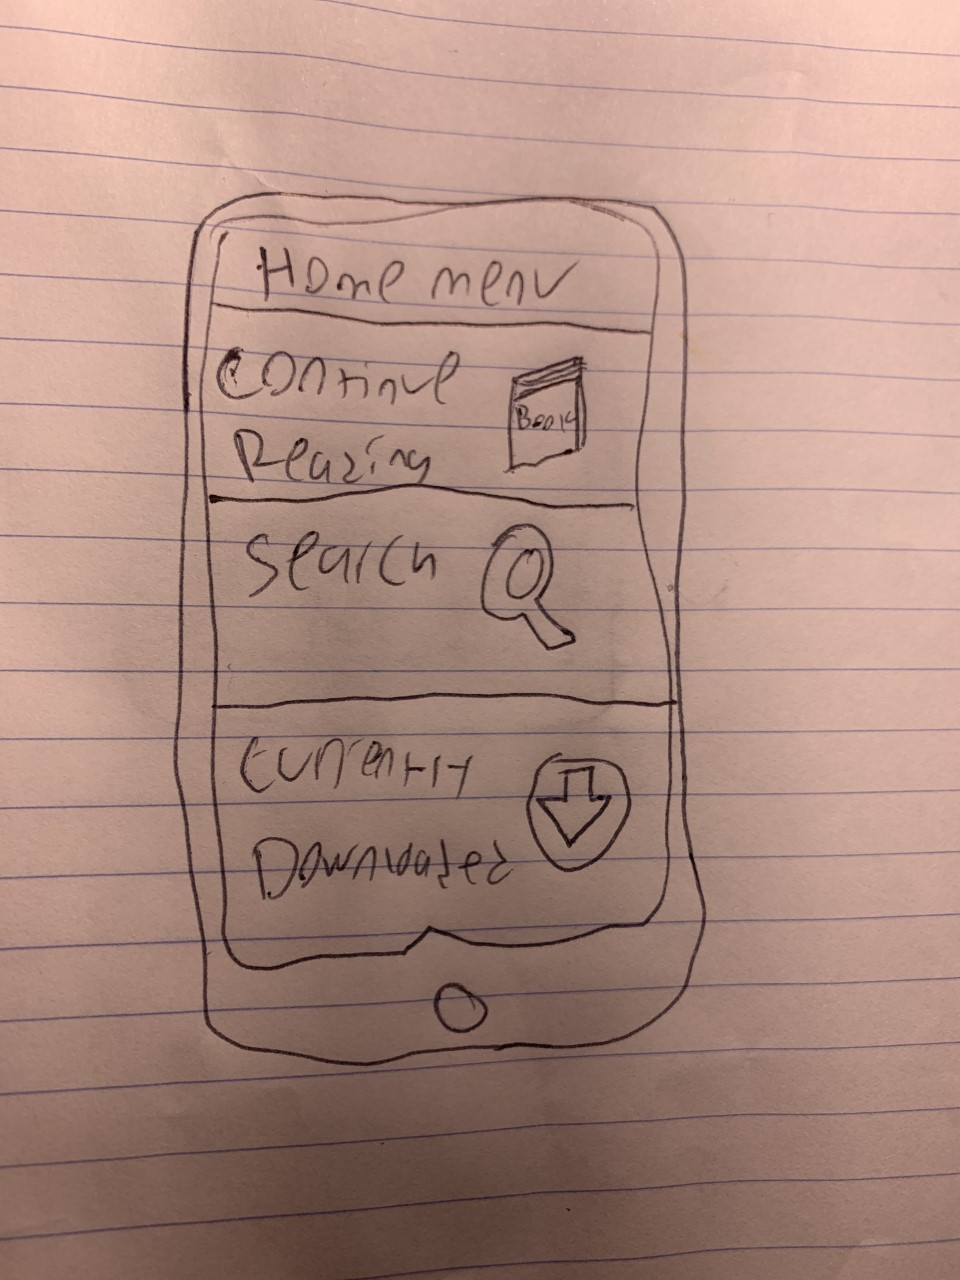 Home menu
Continue
Book
Reading
Search
Currently
Downloaded